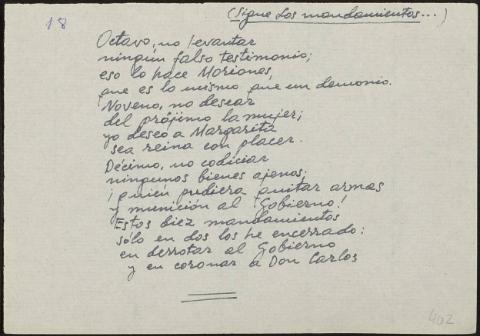 18
(Sigue los mandamientos...)
Octavo, no levantar
ningún falso testimonio;
eso lo hace Moriones,
que es lo mismo que un demonio.
Noveno, no desear
del prójimo la mujer;
yo deseo a Margarita
sea reina con placer.
Décimo, no codiciar
ningunos bienes ajenos;
¡quién pudiera quitar armas
y munición al Gobierno!
Estos diez mandamientos
sólo en dos los he encerrado:
en derrotar al Gobierno
y en coronar a Don Carlos
402